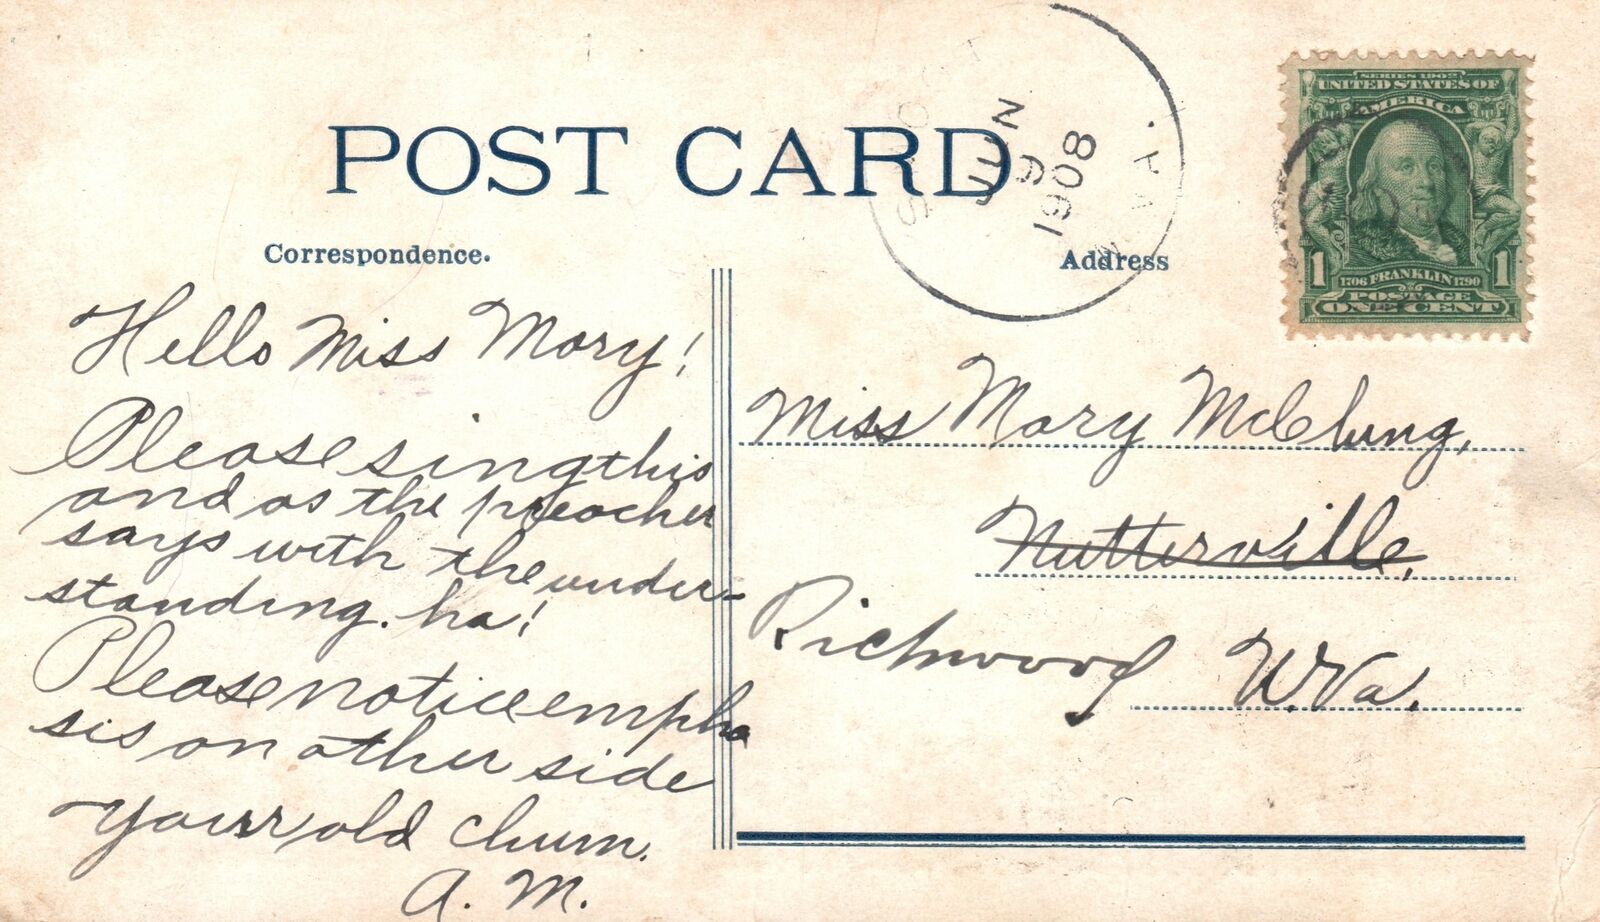 POST CARD
Correspondence.
Address
JUN
9
1908
W. VA.
SERIES 1902
UNITED STATES OF
AMERICA
1 1706 FRANKLIN 1790 1
POSTAGE
ONE CENT
Hello Miss Mary!
Please sing this
and as the preacher
says with the under-
standing. ha!
Please notice empha
sis on other side
Your old chum.
A. M.
Miss Mary McClung,
Nutterville,
Richwood W.Va.